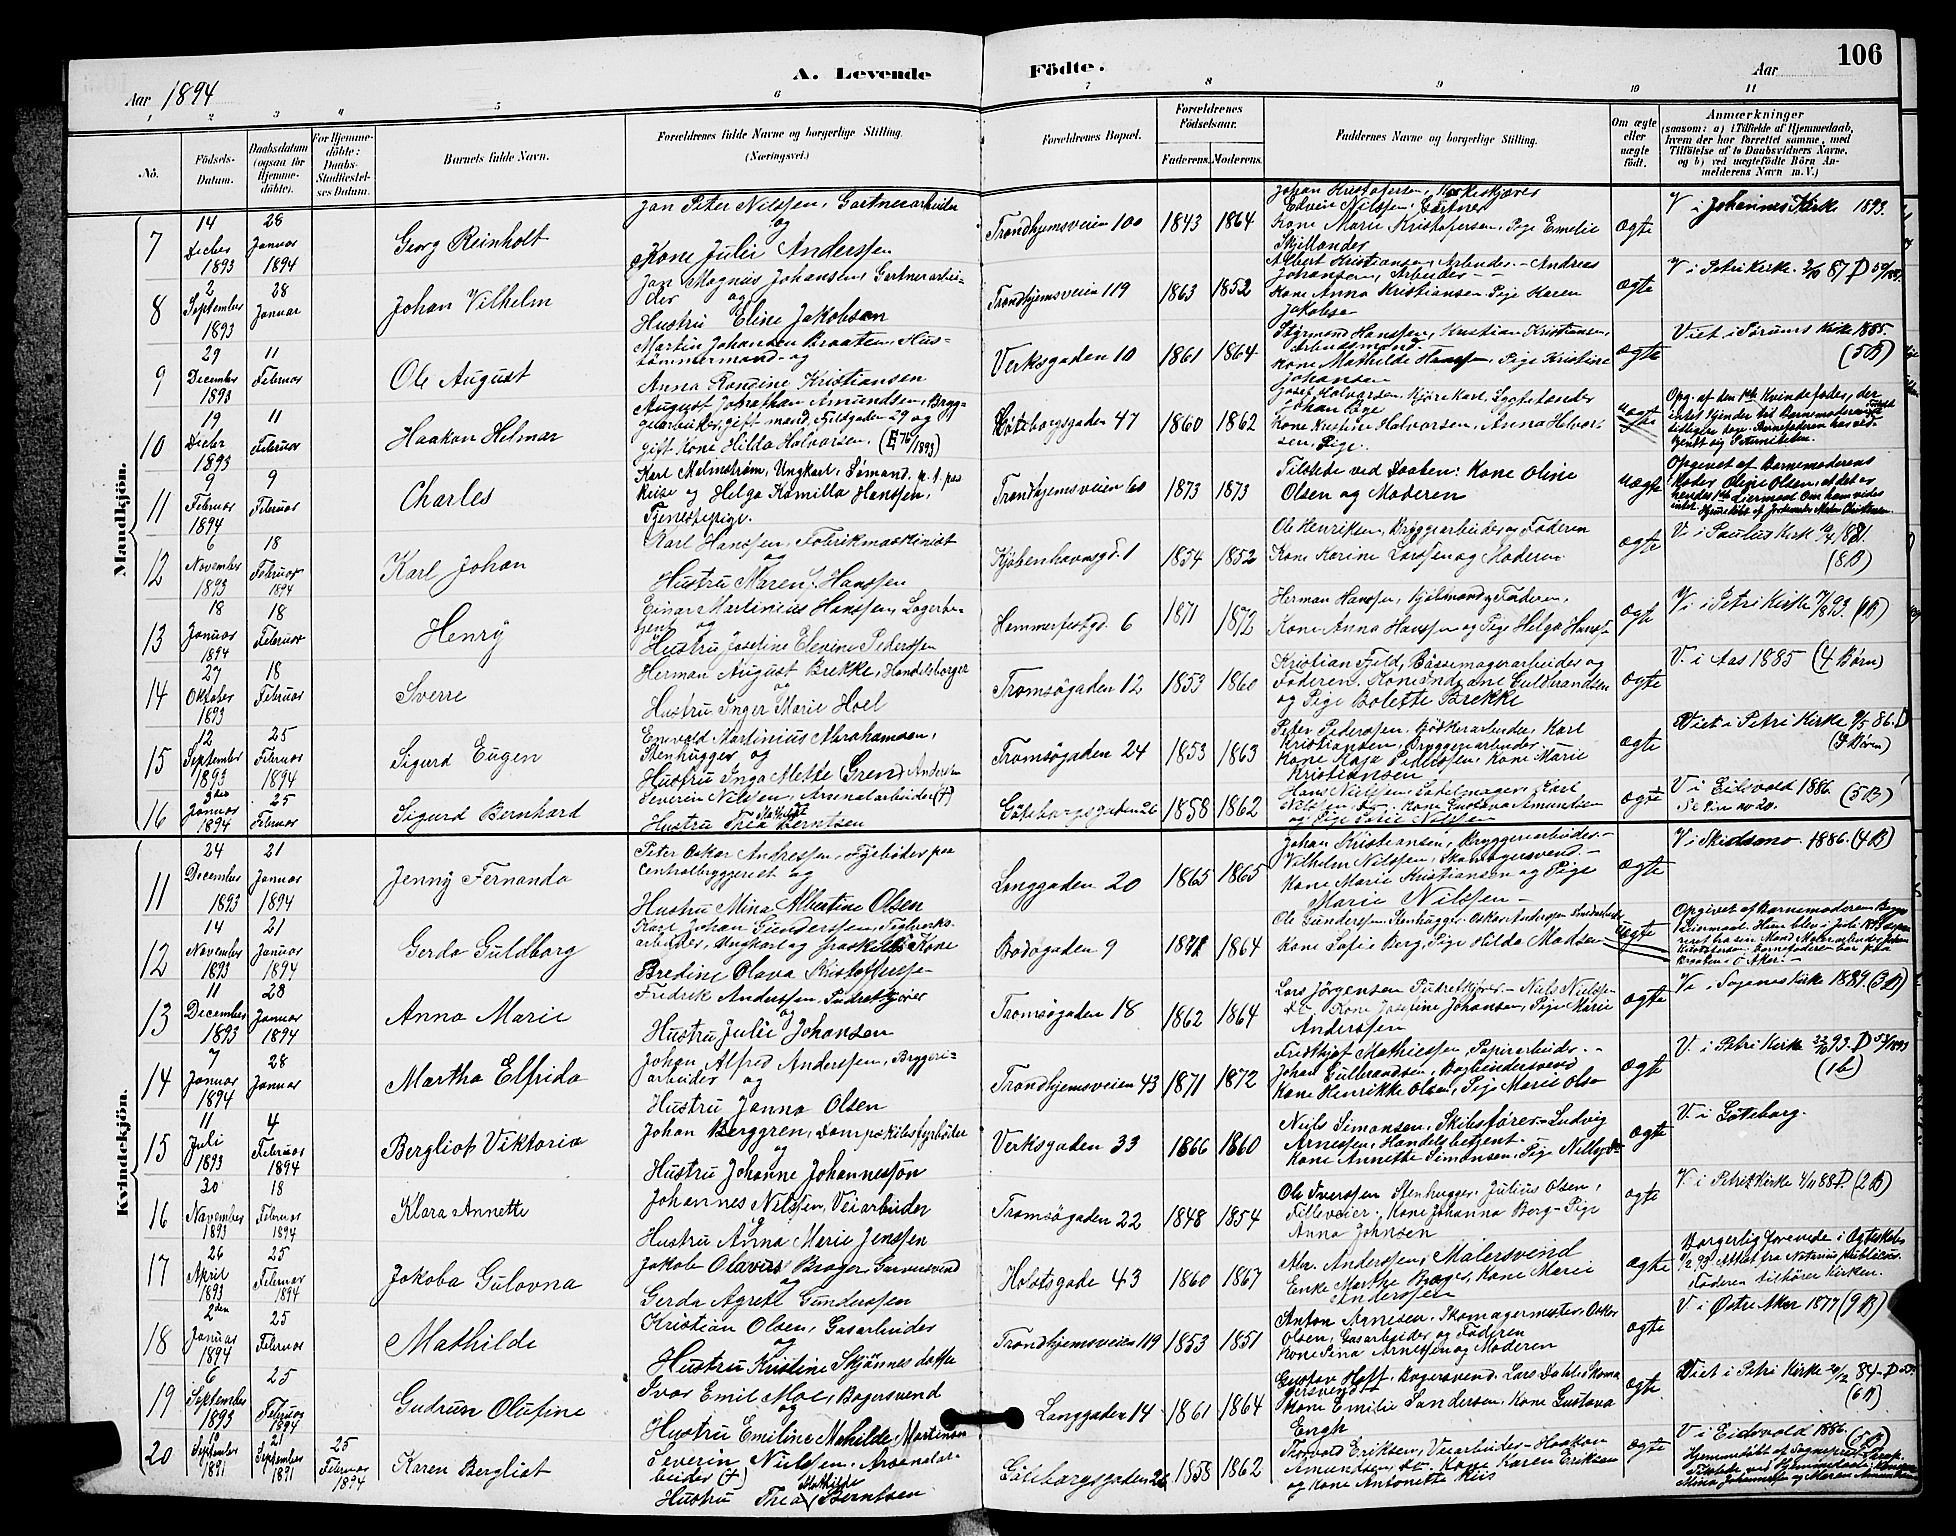 106
A. Levende Födte.
Aar 1894
Aar
1 2 3 4 5 6 7 8 9 10 11
No.
Födsels-Datum.
Daabsdatum (ogsaa for Hjemmedöbte).
For Hjemmedöbte: Daabs-Stadfæstelses Datum.
Barnets fulde Navn.
Forældrenes fulde Navne og borgerlige Stilling. (Næringsvei.)
Forældrenes Bopæl.
Forældrenes Födselsaar.
Faderens. Moderens.
Faddernes Navne og borgerlige Stilling.
Om ægte eller uægte födt.
Anmærkninger
(saasom: a) i Tilfælde af Hjemmedaab, hvem der har forrettet samme, med Tilföielse af to Daabsvidners Navne, og b) ved uægtefödte Börn Anmelderens Navn m. V.)
Mandkjön.
7
14 Decbr 1893
28 Januar 1894
Georg Reinholt
Jan Peter Nilssen, Gartnerarbeider
og
Kone Julie Anderssen
Trondhjemsveien 100
1843 1864
Johan Kristofersen, Kirkeskjæver
Edvin Nilssen, Gartner
Kone Marie Kristofersen, Pige Emelie
ægte
V i Johannes Kirke 1893.
8
2 September 1893
28 Januar
Johan Vilhelm
Jan Magnus Johansen, Gartnerarbei-
der og
Hustru Eline Jakobsen
Trondhjemsveien 119
1863 1852
Albert Kristiansen, Arbeider - Andreas
Johansen, Arbeider -
Kone Anna Kristiansen, Pige Karen
Jakobse
ægte
V i Petri Kirke
9
29 December 1893
11 Februar
Ole August
Martin Johansen Braaten, Hus-
tömmermand og
Anna Randine Kristiansen
Verksgaden 10
1861 1864
Styrmand Hanssen, Kristian Kristiansen,
Arbeidsmand.
Kone Mathilde Hanssen, Pige Kristine
Johansen
ægte
Viet i Sörums Kirke 1885.
(5B)
10
19 Decbr 1893
11 Februar
Haakon Helmar
August Jonathan Amundsen, Brygg-
giarbeider, gift mand, Fjeldgaden 29 og
gift Kone Hilda Halvorsen. (E 76/1893)
Göteborgsgaden 47
1860 1862
Josef Halvorsen, Kjörekarl, Lygtetænder
Johan Lye
Kone Kristine Halvorsen, Anna Halvor-
sen, Pige.
uægte
11
9 Februar 1894
9 Februar
Charles
Karl Malmström, Ungkarl, Sömand, p. t. paa
Reise og Helga Kamilla Hanssen,
Tjenestepige.
Trondhjemsveien 60
1873 1873
Tilstede ved Daaben: Kone Oline
Olsen og Moderen
uægte
Opgivet af Barnemoderens
Moder Oline Olsen, at det er
hendes 1ste Leiermaal. Om ham vides
intet.
12
6 November 1893
18 Februar 1894
Karl Johan
Karl Hanssen, Fabrikmaskinist
og
Hustru Maren Hanssen
Kjöbenhavnsgd. 1
1854 1852
Ole Henriksen, Bryggerarbeider og Faderen
Kone Karine Larssen og Moderen
ægte
V. i Paulus Kirke
(8B)
13
18 Januar 1894
18 Februar
Henry
Einar Martinius Hanssen, Lagerbe-
tjent og
Hustru Josefine Elevine Pederssen
Hammerfestgd. 6
1871 1872
Herman Hanssen, Hjulmand og Faderen,
Kone Anna Hanssen og Pige Helga Hanss-
ægte
V. i Petri Kirke 7/8 93. (1B)
14
27 Oktober 1893
18 Februar
Sverre
Herman August Brekke, Handelsborger
og
Hustru Inger Marie Hoel
Tromsögaden 12
1853 1860
Kristian Fjeld, Bössemagerarbeider og
Faderen. Kone Indiane Guldbrandsen
og Pige Bolette Brekke
ægte
V. i Aas 1885 (4 Börn)
15
12 September 1893
25 Februar 1894
Sigurd Eugen
Enevold Martinius Abrahamsen,
Stenhugger og
Hustru Inga Mette (Gren) Andersen
Tromsögaden 24
1853 1863
Peter Pederssen, Bödkerarbeider, Karl
Kristiansen, Bryggeriarbeider
Kone Kaja Pederssen, Kone Marie
Kristiansen
ægte
Viet i Petri Kirke 9/5 86.
16
3die Januar 1894
25 Februar
Sigurd Bernhard
Severin Nilssen, Arsenalarbeider (†)
Hustru Thea Mathilde Berntsen
Göteborgsgaden 26
1858 1862
Hans Nilssen, Sadelmager, Karl
Nilssen, do. Kone Gustava Amundsen
og Pige Marie Nilssen
ægte
V. i Eidsvold 1886. (5B)
Se Pige no 20.
Kvindekjön.
11
24 December 1893
21 Januar 1894
Jenny Fernanda
Peter Oskar Andressen, Fyrböder paa
Centralbryggeriet og
Hustru Mina Albertine Olsen
Langgaden 20
1865 1865
Johan Kristiansen, Bryggeriarbeider -
Vilhelm Nilssen, Skomagersvend. -
Kone Marie Kristiansen og Pige
Marie Nilssen -
ægte
V. i Skedsmo 1886. (4B)
12
14 November 1893
21 Januar 1894
Gerda Guldborg
Karl Johan Gunderssen, Teglverks-
arbeider, Ungkarl og fraskildt Kone
Bredine Olava Kristofferssen
Bodögaden 9
1871 1864
Ole Gunderssen, Stenhugger. Oskar Anderssen
Kone Sofie Berg, Pige Hilda Madsen
uægte
13
11 December 1893
28 Januar 1894
Anna Marie
Fredrik Anderssen, Pudretkjörer
og
Hustru Julie Johansen
Tromsögaden 18
1862 1864
Lars Jörgensen, Pudretkjörer. - Niels Nielssen
do. Kone Josefine Johansen, Pige Marie
Anderssen
ægte
V. i Sagenes Kirke 1889 (3B)
14
7 Januar 1894
28 Januar
Martha Elfrida
Johan Alfred Anderssen, Bryggeri-
arbeider og
Hustru Janna Olsen
Trondhjemsveien 43
1871 1872
Fredthjof Mathiessen, Papirarbeider. -
Johan Gulbrandsen, Bogbindersvend
Kone Henrikke Olsen, Pige Marie Olsen
ægte
V. i Petri Kirke
(1B)
15
11 Juli 1893
4 Februar 1894
Bergliot Viktoria
Johan Berggren, Dampskibsfyrböder
og
Hustru Johanne Johannesson
Verksgaden 33
1866 1860
Niels Simonsen, Skibsförer - Ludvig
Arnessen, Handelsbetjent. -
Kone Annette Simonsen, Pige
ægte
V. i Göteborg.
16
30 November 1893
18 Februar 1894
Klara Annette
Johannes Nilssen, Veiarbeider
og
Hustru Anna Marie Jenssen
Tromsögaden 22
1848 1854
Ole Iverssen, Stenhugger, Julius Olsen,
Filleveier. Kone Johanna Berg - Pige
Anna Johnsen
ægte
V. i Petri Kirke 4/11 88 (2B)
17
26 April 1893
25 Februar 1894
Jakoba Gulovna
Jakob Olavus Brager, Garversvend
og
Gerda Agrete Gunderssen
Holstsgade 43
1860 1867
Alr. Anderssen, Malersvend
Enke Marthe Brager, Kone Marie
Anderssen
ægte
Borgerlig forevede i Ægteskab
Attest fra Notarius publicus.
Faderen tilhörer Kirken.
18
2den Januar 1894
25 Februar
Mathilde
Kristian Olsen, Gasarbeider
og
Hustru Kristine Skjönnesdatter
Trondhjemsveien 119
1853 1851
Anton Arnesen, Skomagermester, Oskar
Olsen, Gasarbeider og Faderen
Kone Sina Arnessen og Moderen
ægte
V. i Östre Aker 1877 (9B)
19
6 September 1893
25 Februar 1894
Gudrun Olufine
Ivar Emil Moe, Bagersvend
og
Hustru Emiline Mathilde Martinsen
Langgaden 14
1861 1864
Gustav Hoff, Bagersvend. Lars Dahl Skoma-
gersvend
Kone Emilie Sandersen, Kone Gustava
Engh
ægte
Viet i Petri Kirke
(6B)
20
September 1891
21 September 1891
25 Februar 1894
Karen Bergliot
Severin Nielssen, Arsenalar-
beider (†)
Hustru Thea Mathilde Berntsen
Göteborgsgaden 26
1858 1862
Thorvald Eriksen, Veiarbeider - Haakon
Amundsen, do. Kone Karen Eriksen
og Kone Antonette Riis
ægte
V. i Eidsvold 1886.
(5B)